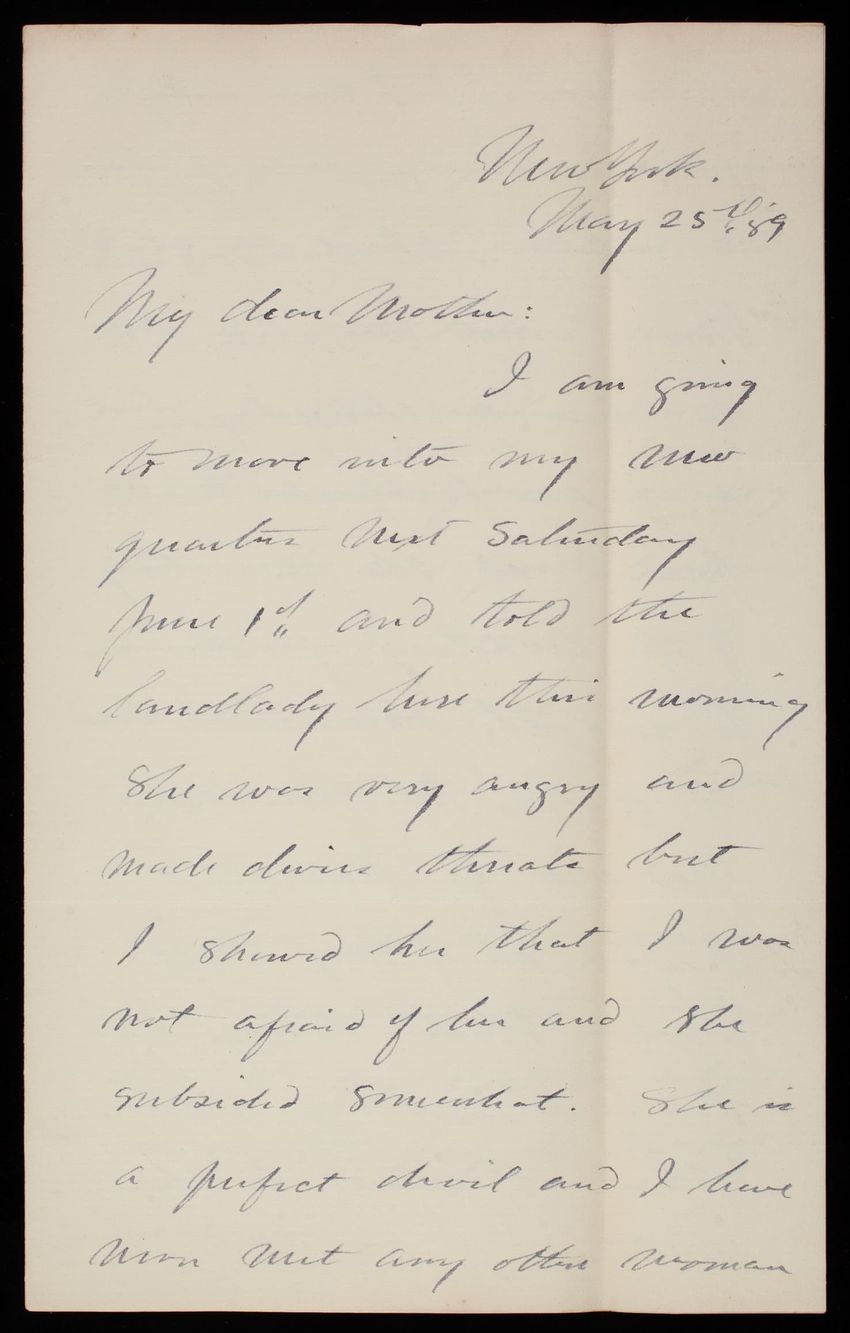 New York.
May 25th '89
My dear Mother:
I am going
to move into my new
quarters next Saturday
June 1st and told the
landlady here this morning
She was very angry and
made divers threats but
I showed her that I was
not afraid of her and she
subsided somewhat. She is
a perfect devil and I have
never met any other woman